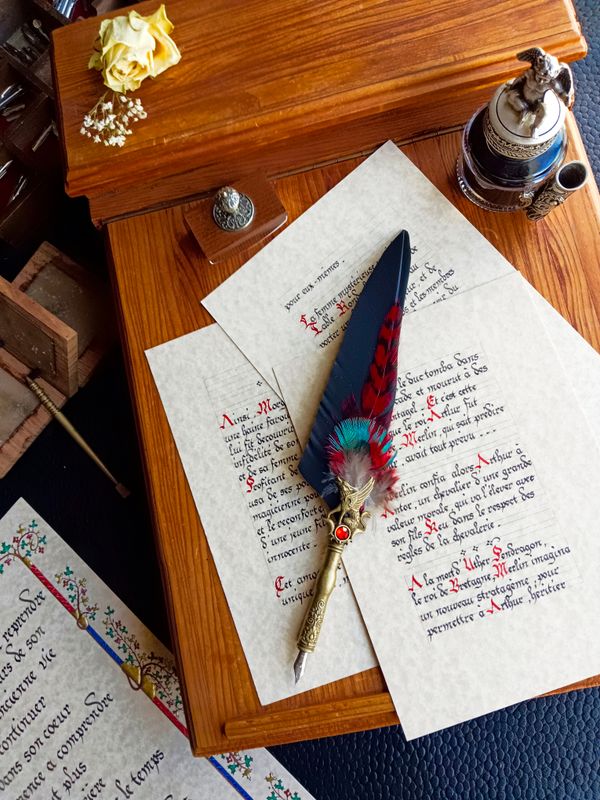 pour eux-mêmes.
La femme mystérieuse
Table
porter
et de
et les membres
du
Ainsi, Mor
une haine
lui fit découvrir
infidélité de son
et de sa femme
Profitant de
usa de ses po
magicienne pour
et le réconforter
d'une jeune f
innocente.
Cet amour
unique
le duc tomba dans
et mourut à des
ntagel. Et c'est cette
que le roi Arthur fut
Merlin, qui sait prédire
avait tout prévu
Merlin confia alors Arthur à
Antor, un chevalier d'une grande
valeur morale, qui va l'élever avec
son fils Keu dans le respect des
règles de la chevalerie.
A la mort d'Uther Pendragon,
le roi de Bretagne, Merlin imagina
un nouveau stratagème pour
permettre à Arthur, héritier
reprendre
de son
ancienne vie
continuer
dans son coeur
à comprendre
plus
le temps